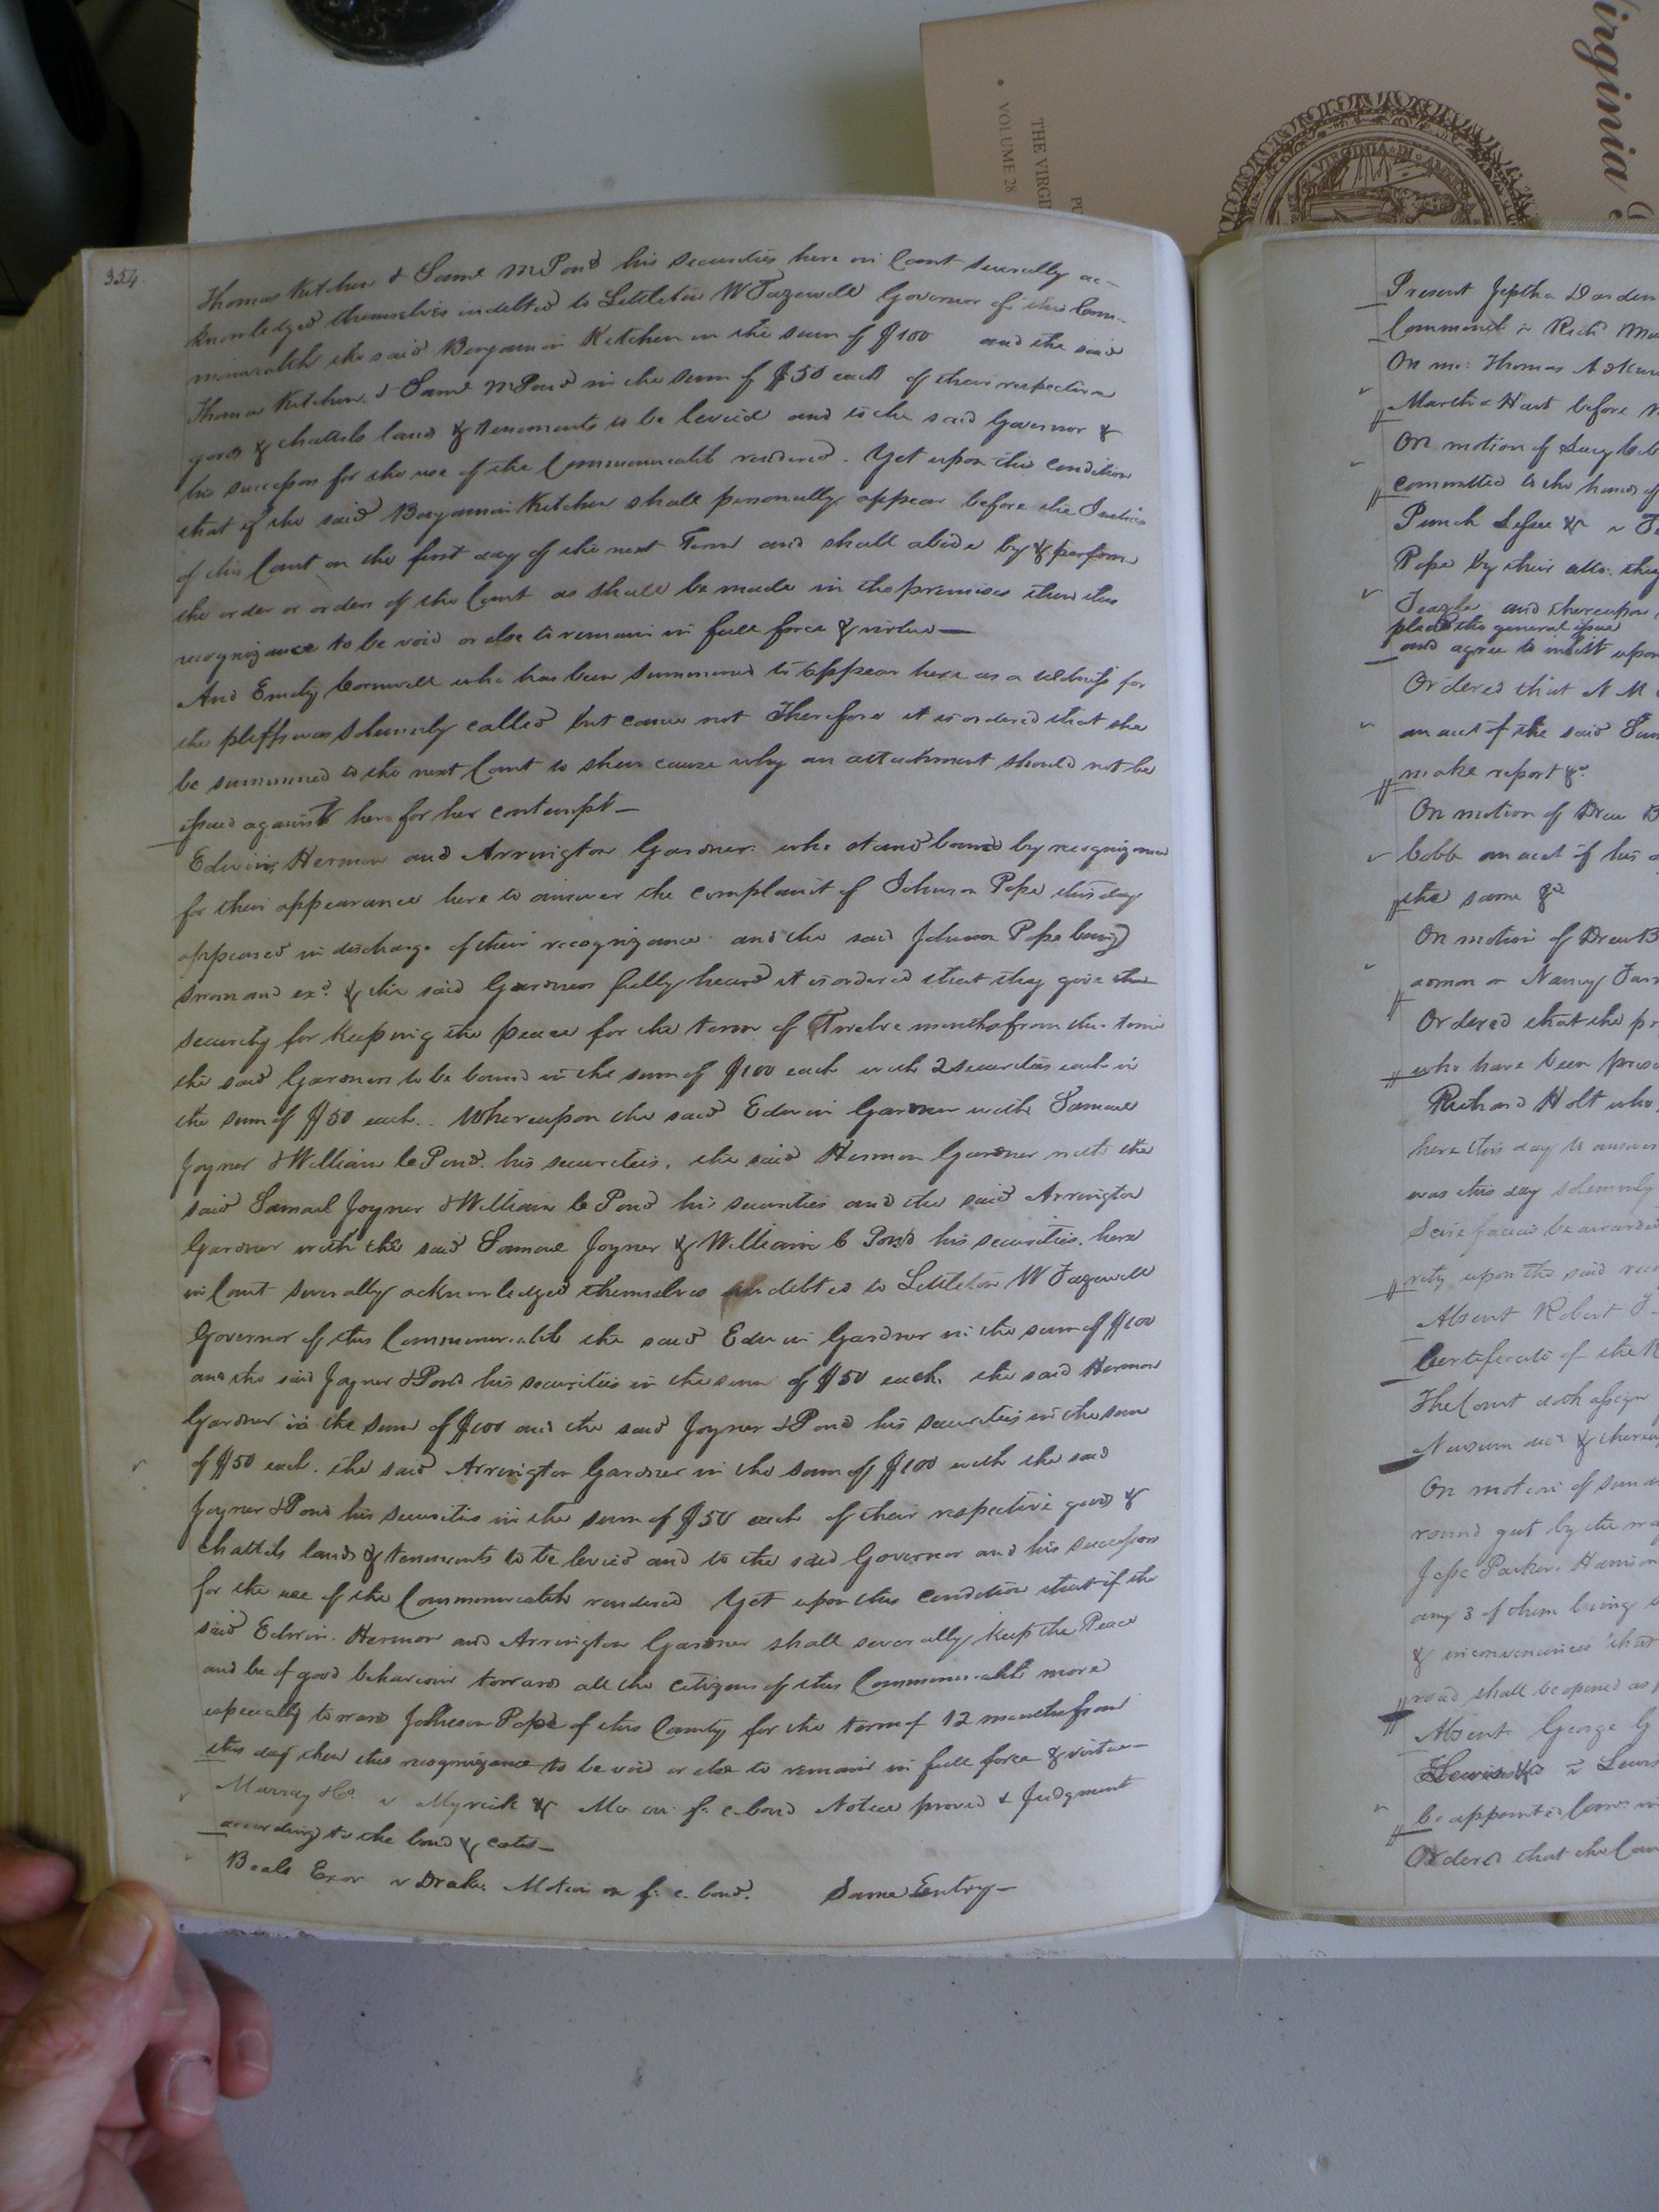 Virginia
THE VIRGI
VOLUME 28
PU
VIRGINIA IN
354.
Thomas Kitchen & Saml M Pond his securities here in Court severally ac-
knowledged themselves indebted to Littleton W Tazewell Governor of this Com-
monwealth the said Benjamin Kitchen in the sum of $100 and the said
Thomas Kitchen & Saml M Pond in the sum of $50 each of their respective
goods & chattels land & tenements to be levied and to the said Governor &
his successors for the use of the Commonwealth rendered. Yet upon this condition
that if the said Benjamin Kitchen shall personally appear before the Justices
of this Court on the first day of the next Term and shall abide by & perform
the order or orders of the Court as shall be made in the premises then this
recognizance to be void or else to remain in full force & virtue—
And Emily Cornwell who has been summoned to appear here as a witness for
the pltffs was solemnly called but came not Therefore it is ordered that she
be summoned to the next Court to shew cause why an attachment should not be
issued against her for her contempt—
Edwin, Hermon and Arrington Gardner who stand bound by recognizance
for their appearance here to answer the complaint of Johnson Pope this day
appeared in discharge of their recognizance and the said Johnson Pope being
sworn and exd. & the said Gardners fully heard it is ordered that they give
security for keeping the peace for the term of Twelve months from this time
the said Gardners to be bound in the sum of $100 each with 2 securities each in
the sum of $50 each.. Whereupon the said Edwin Gardner with Samuel
Joyner & William C Pond. his securities, the said Hermon Gardner with the
said Samuel Joyner & William C Pond his securities and the said Arrington
Gardner with the said Samuel Joyner & William C Pond his securities. here
in Court severally acknowledged themselves indebted to Littleton W Tazewell
Governor of this Commonwealth the said Edwin Gardner in the sum of $100
and the said Joyner & Pond his securities in the sum of $50 each. the said Hermon
Gardner in the sum of $100 and the said Joyner & Pond his securities in the sum
of $50 each. the said Arrington Gardner in the sum of $100 with the said
Joyner & Pond his securities in the sum of $50 each of their respective goods &
chattels lands & tenements to be levied and to the said Governor and his successors
for the use of the Commonwealth rendered Yet upon this condition that if the
said Edwin. Hermon and Arrington Gardner shall severally keep the Peace
and be of good behaviour towards all the citizens of this Commonwealth more
especially towards Johnson Pope of this County for the term of 12 months from
this day then this recognizance to be void or else to remain in full force & virtue—
Murray & Co. v Myrick & Mo. on f. c. bond Notice proved & Judgment
according to the bond & costs—
Beals Exor v Drake. Motion on f. c. bond. Same Entry—
Present Jeptha Darden
Commonwt v Richd
On mo: Thomas
Martha Hart before
On motion of Lucy
committed to the hands of
Punch Lessee & v
Pope by their atto. they
Teazle and thereupon
plead the general issue
and agree to insist upon
Ordered that N M
an acct of the said
make report &c.
On motion of Drew B
Cobb an acct of his
the same &c
On motion of Drew B
admon on Nancy
Ordered that the pr
who have been prese
Richard Holt who
here this day to answer
was this day solemnly
Scire facias be awarded
rity upon the said reco
Absent Robert
Certificate of the
The Court doth assign
Newsum decd & thereu
On motion of
round gut by the
Jesse Parker. Harrison
any 3 of them being
& inconveniences that
road shall be opened as
Absent George G
v Lewis
be appointed
Ordered that the Cou